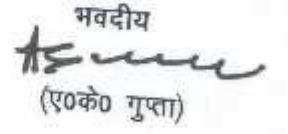 भवदीय
(ए०के० गुप्ता)